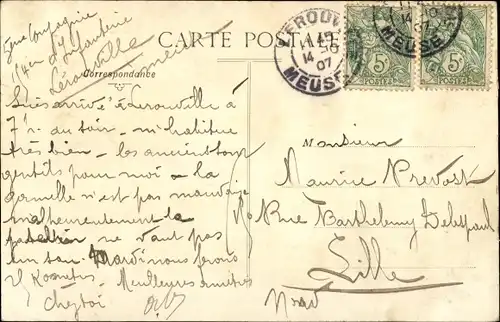 5ème Compagnie
d'Infanterie
Lérouville
Meuse
CARTE POSTALE
Correspondance
LEROUV
14
07
MEUSE
14
07
MEUSE
5c
POSTES
5c
POSTES
Suis arrivé à Lérouville à
7h. du soir - m'habitue
très bien - les anciens sont
gentils pour moi - la
gamelle n'est pas mauvaise
malheureusement la
ne vaut pas
un sou. Mardi nous ferons
Meilleures amitiés
chez toi
Monsieur
Maurice Prevost
Rue Barthelemy Delespaul
Lille
Nord